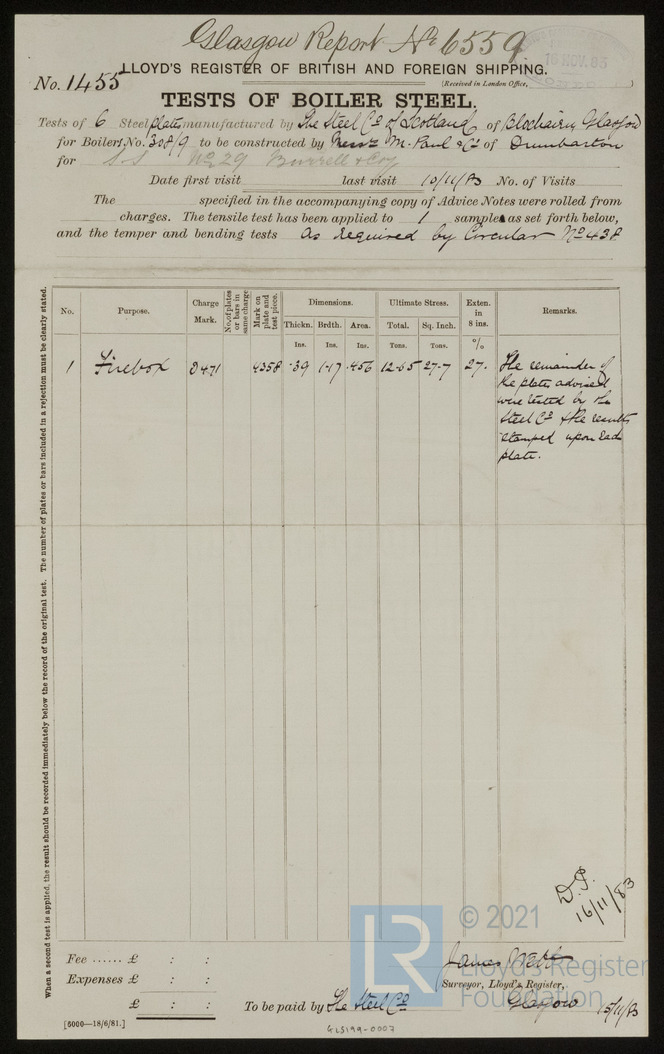 Glasgow Report No 6559
16 NOV. 83
No. 1455
LLOYD'S REGISTER OF BRITISH AND FOREIGN SHIPPING.
(Received in London Office, )
TESTS OF BOILER STEEL.
Tests of 6 Steel plates manufactured by The Steel Co of Scotland of Blochairn Glasgow
for Boilers, No. 308/9 to be constructed by Messrs M. Paul & Co of Dumbarton
for S.S. No 29 Burrell & Coy
Date first visit last visit 10/11/83 No. of Visits
The specified in the accompanying copy of Advice Notes were rolled from
charges. The tensile test has been applied to 1 sample as set forth below,
and the temper and bending tests as required by Circular No 438
No. Purpose. Charge Mark. No. of plates or bars in same charge Mark on plate and test piece. Dimensions. Ultimate Stress. Exten. in 8 ins. Remarks.
Thickn. Brdth. Area. Total. Sq. Inch.
Ins. Ins. Ins. Tons. Tons. %
1 Firebox 9471 4358 .39 1.17 .456 12.65 27.7 27.
The remainder of
the plates advised
were tested by the
Steel Co & the results
stamped upon each
plate.
When a second test is applied, the result should be recorded immediately below the record of the original test. The number of plates or bars included in a rejection must be clearly stated.
D.P.
16/11/83
© 2021
LR
Lloyd's Register
Foundation
Fee ...... £ : :
Expenses £ : :
£ : :
To be paid by The Steel Co
James Webb
Surveyor, Lloyd's Register,
Glasgow 15/11/83
[6000—18/6/81.]
GLS199-0007